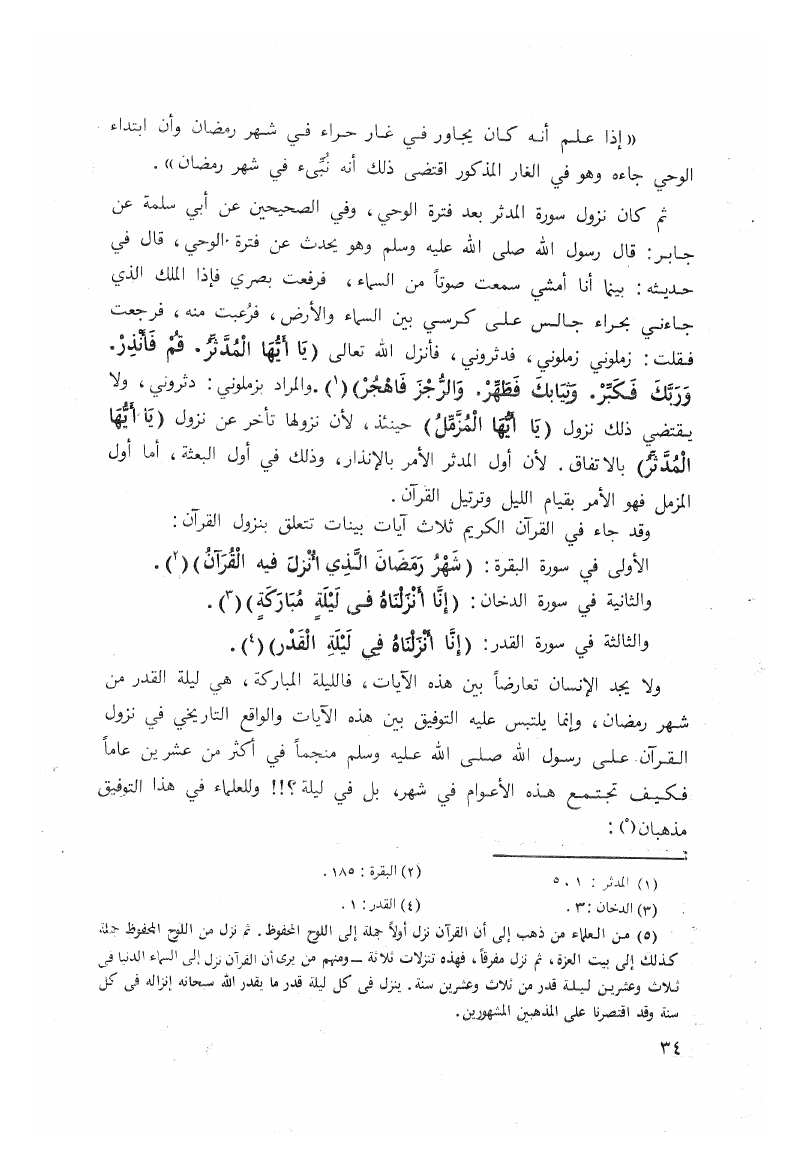 « إذا علم أنه كان يجاور في غار حراء في شهر رمضان وأن ابتداء
الوحي جاءه وهو في الغار المذكور اقتضى ذلك أنه نُبِّىء في شهر رمضان » .
ثم كان نزول سورة المدثر بعد فترة الوحي ، وفي الصحيحين عن أبي سلمة عن
جابر : قال رسول الله صلى الله عليه وسلم وهو يحدث عن فترة الوحي ، قال في
حديثه : بينما أنا أمشي سمعت صوتاً من السماء ، فرفعت بصري فإذا الملك الذي
جاءني بحراء جالس على كرسي بين السماء والأرض ، فرُعبت منه ، فرجعت
فقلت : زملوني زملوني ، فدثروني ، فأنزل الله تعالى (يَا أَيُّهَا الْمُدَّثِّرُ. قُمْ فَأَنْذِرْ.
وَرَبَّكَ فَكَبِّرْ. وَثِيَابَكَ فَطَهِّرْ. وَالرُّجْزَ فَاهْجُرْ) (١) .والمراد بزملوني : دثروني ، ولا
يقتضي ذلك نزول (يَا أَيُّهَا الْمُزَّمِّلُ) حينئذ ، لأن نزولها تأخر عن نزول (يَا أَيُّهَا
الْمُدَّثِّرُ) بالاتفاق . لأن أول المدثر الأمر بالإنذار ، وذلك في أول البعثة ، أما أول
المزمل فهو الأمر بقيام الليل وترتيل القرآن .
وقد جاء في القرآن الكريم ثلاث آيات بينات تتعلق بنزول القرآن :
الأولى في سورة البقرة : (شَهْرُ رَمَضَانَ الَّذِي أُنْزِلَ فيه الْقُرْآنُ) (٢) .
والثانية في سورة الدخان : (إِنَّا أَنْزَلْنَاهُ فِي لَيْلَةٍ مُبَارَكَةٍ) (٣) .
والثالثة في سورة القدر : (إِنَّا أَنْزَلْنَاهُ فِي لَيْلَةِ الْقَدْرِ) (٤) .
ولا يجد الإنسان تعارضاً بين هذه الآيات ، فالليلة المباركة ، هي ليلة القدر من
شهر رمضان ، وإنما يلتبس عليه التوفيق بين هذه الآيات والواقع التاريخي في نزول
القرآن على رسول الله صلى الله عليه وسلم منجماً في أكثر من عشرين عاماً
فكيف تجتمع هذه الأعوام في شهر، بل في ليلة ؟!! وللعلماء في هذا التوفيق
مذهبان (٥) :
(١) المدثر : ١ ، ٥ (٢) البقرة : ١٨٥ .
(٣) الدخان : ٣ . (٤) القدر : ١ .
(٥) من العلماء من ذهب إلى أن القرآن نزل أولاً جملة إلى اللوح المحفوظ . ثم نزل من اللوح المحفوظ جملة
كذلك إلى بيت العزة ، ثم نزل مفرقاً ، فهذه تنزلات ثلاثة ــ ومنهم من يرى أن القرآن نزل إلى السماء الدنيا فى
ثلاث وعشرين ليلة قدر من ثلاث وعشرين سنة . ينزل فى كل ليلة قدر ما يقدر الله سبحانه إنزاله فى كل
سنة وقد اقتصرنا على المذهبين المشهورين .
٣٤